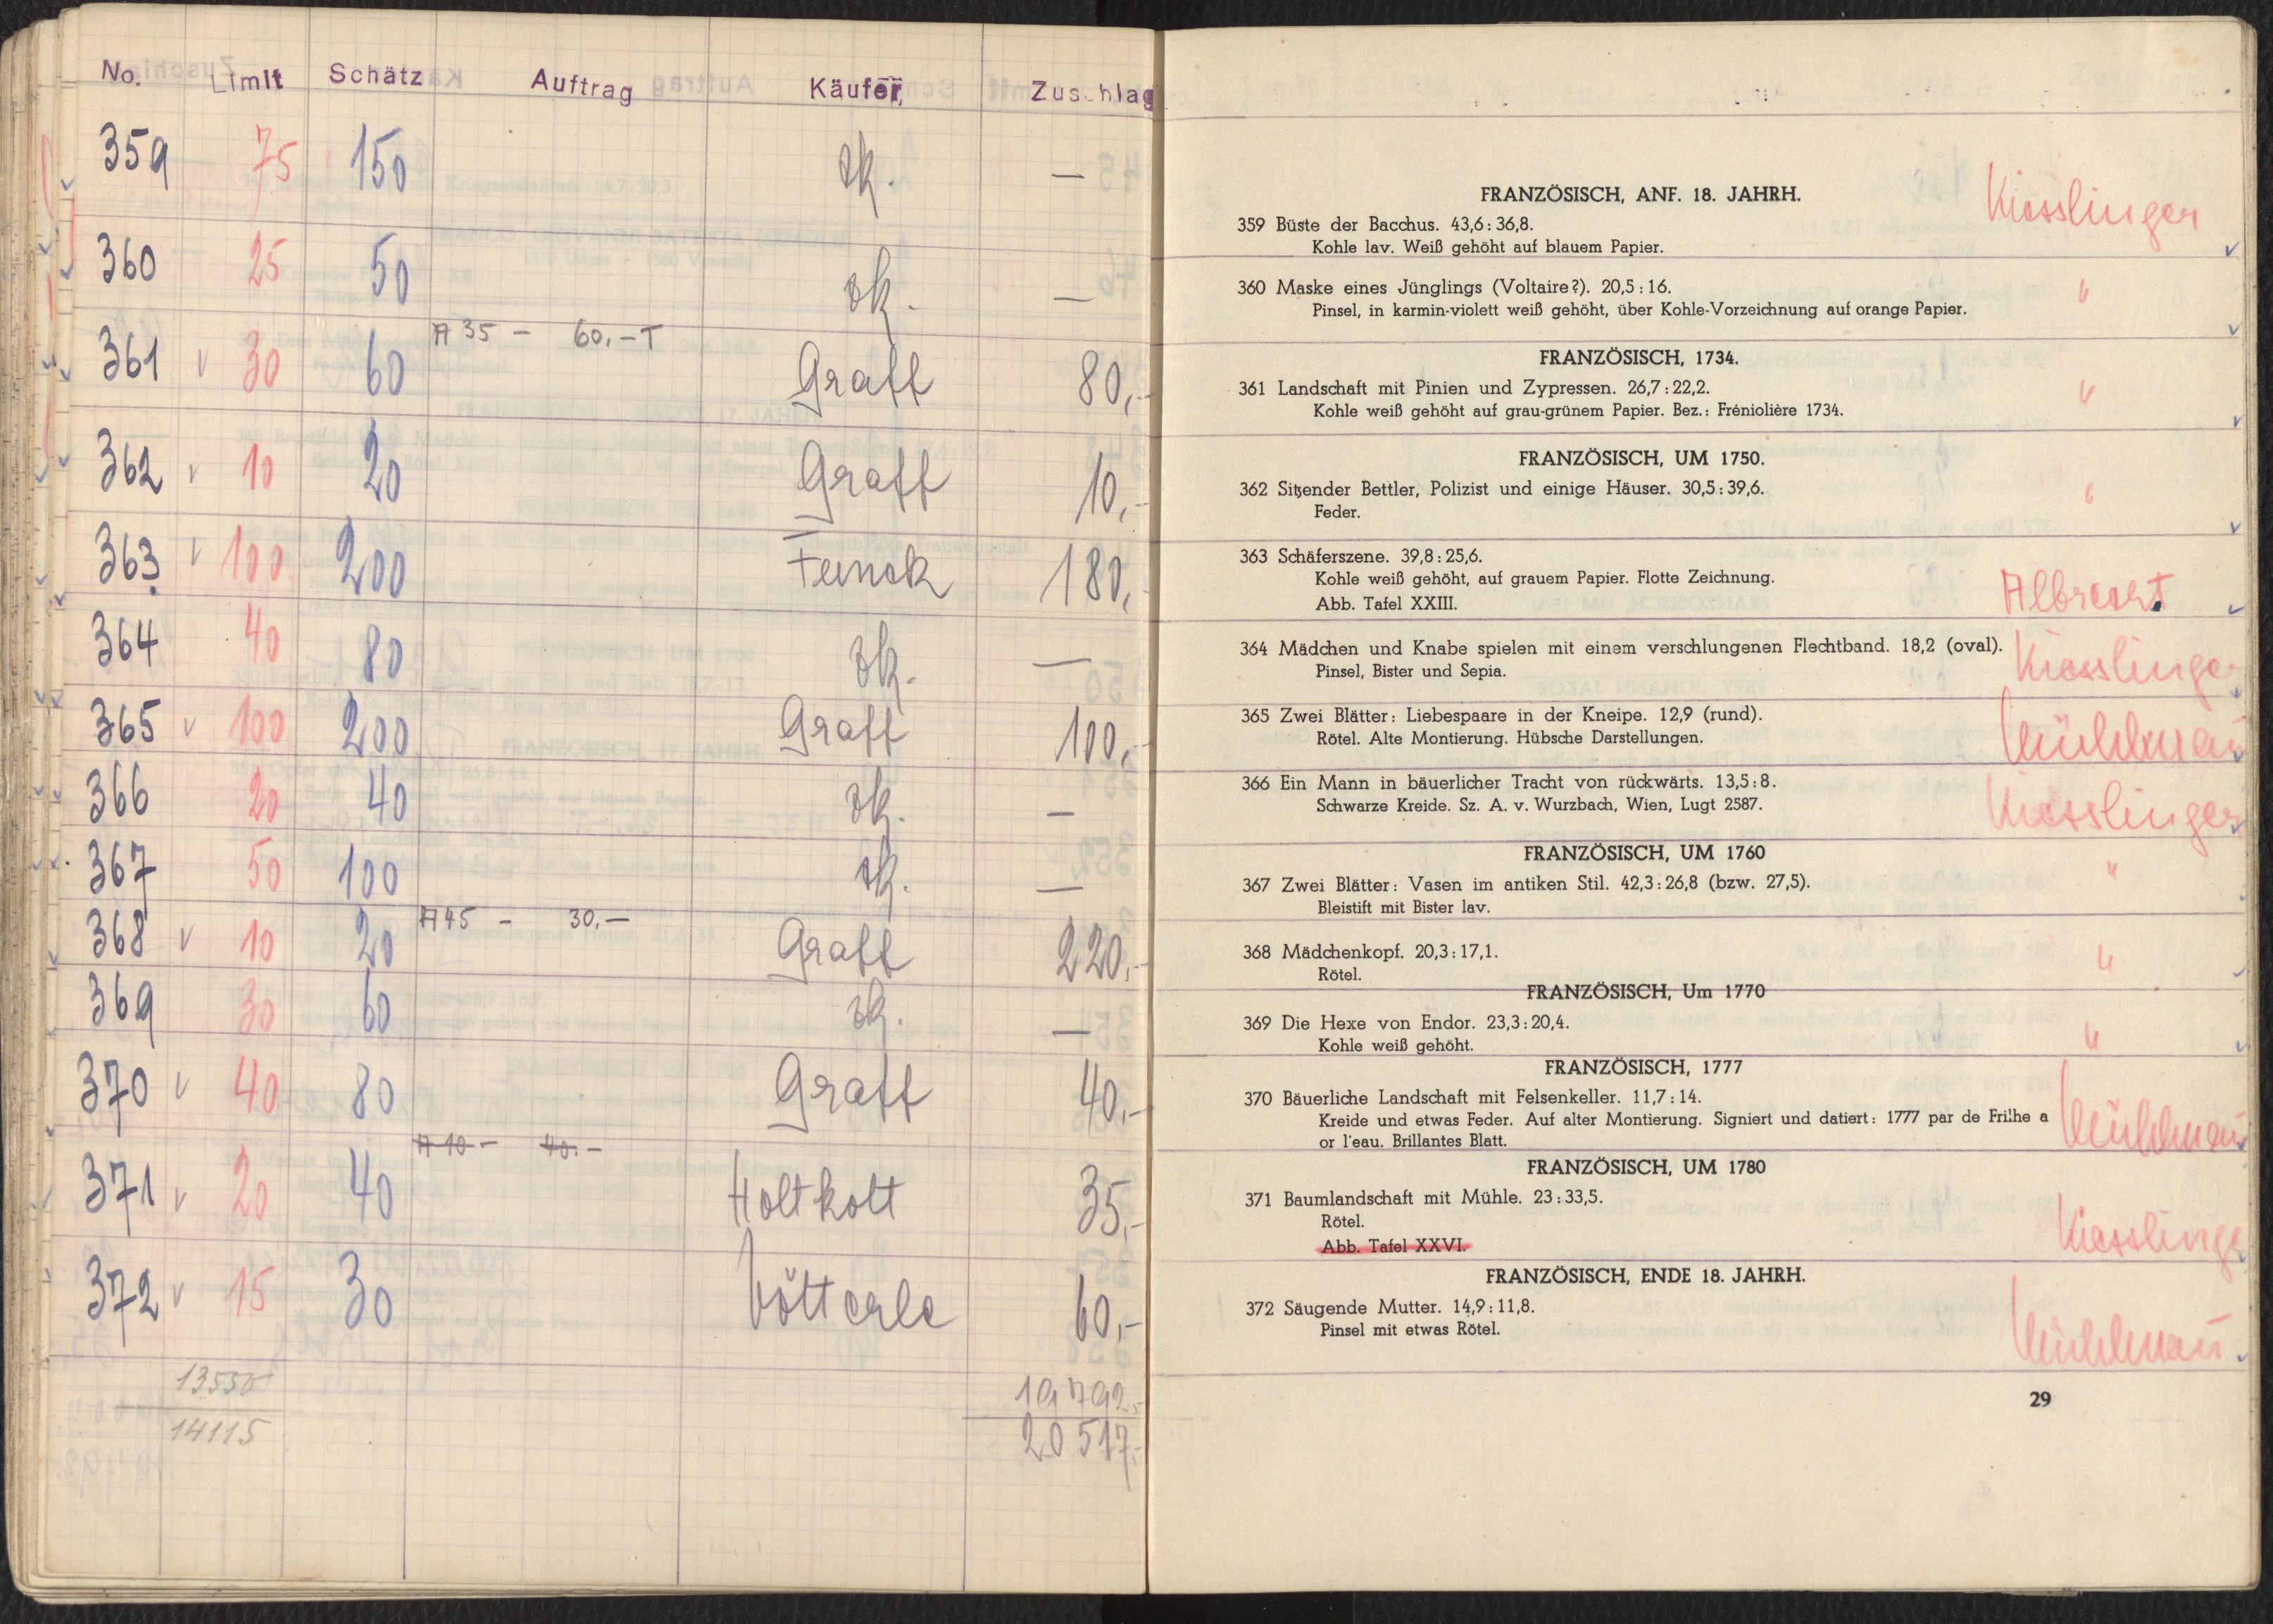 No. Limit Schätz Auftrag Käufer Zuschlag
359 75 150 zk. —
360 25 50 zk. —
A 35 – 60,– T
361 v 30 60 Graff 80,–
362 v 10 20 Graff 10,–
363 v 100 200 180,–
364 40 80 zk. —
365 v 100 200 Graff 100,–
366 20 40 zk. —
367 50 100 zk. —
A 45 – 30,–
368 v 10 20 Graff 220,–
369 30 60 zk. —
370 v 40 80 Graff 40,–
A 10 – 40.–
371 v 20 40 Holtkott 35,–
372 v 15 30 Vötterle 60,–
13550 19792,–
14115 20517,–
FRANZÖSISCH, ANF. 18. JAHRH.
Kiesslinger
359 Büste der Bacchus. 43,6 : 36,8.
Kohle lav. Weiß gehöht auf blauem Papier.
360 Maske eines Jünglings (Voltaire?). 20,5 : 16. "
Pinsel, in karmin-violett weiß gehöht, über Kohle-Vorzeichnung auf orange Papier.
FRANZÖSISCH, 1734.
361 Landschaft mit Pinien und Zypressen. 26,7 : 22,2. "
Kohle weiß gehöht auf grau-grünem Papier. Bez.: Fréniolière 1734.
FRANZÖSISCH, UM 1750.
362 Sitzender Bettler, Polizist und einige Häuser. 30,5 : 39,6. "
Feder.
363 Schäferszene. 39,8 : 25,6.
Kohle weiß gehöht, auf grauem Papier. Flotte Zeichnung.
Abb. Tafel XXIII. Albrecht
364 Mädchen und Knabe spielen mit einem verschlungenen Flechtband. 18,2 (oval).
Pinsel, Bister und Sepia. Kiesslinger
365 Zwei Blätter: Liebespaare in der Kneipe. 12,9 (rund).
Rötel. Alte Montierung. Hübsche Darstellungen.
366 Ein Mann in bäuerlicher Tracht von rückwärts. 13,5 : 8.
Schwarze Kreide. Sz. A. v. Wurzbach, Wien, Lugt 2587. Kiesslinger
FRANZÖSISCH, UM 1760
367 Zwei Blätter: Vasen im antiken Stil. 42,3 : 26,8 (bzw. 27,5). "
Bleistift mit Bister lav.
368 Mädchenkopf. 20,3 : 17,1. "
Rötel.
FRANZÖSISCH, Um 1770
369 Die Hexe von Endor. 23,3 : 20,4. "
Kohle weiß gehöht.
FRANZÖSISCH, 1777
370 Bäuerliche Landschaft mit Felsenkeller. 11,7 : 14.
Kreide und etwas Feder. Auf alter Montierung. Signiert und datiert: 1777 par de Frilhe a
or l'eau. Brillantes Blatt.
FRANZÖSISCH, UM 1780
371 Baumlandschaft mit Mühle. 23 : 33,5.
Rötel.
Abb. Tafel XXVI. Kiesslinge
FRANZÖSISCH, ENDE 18. JAHRH.
372 Säugende Mutter. 14,9 : 11,8.
Pinsel mit etwas Rötel.
29